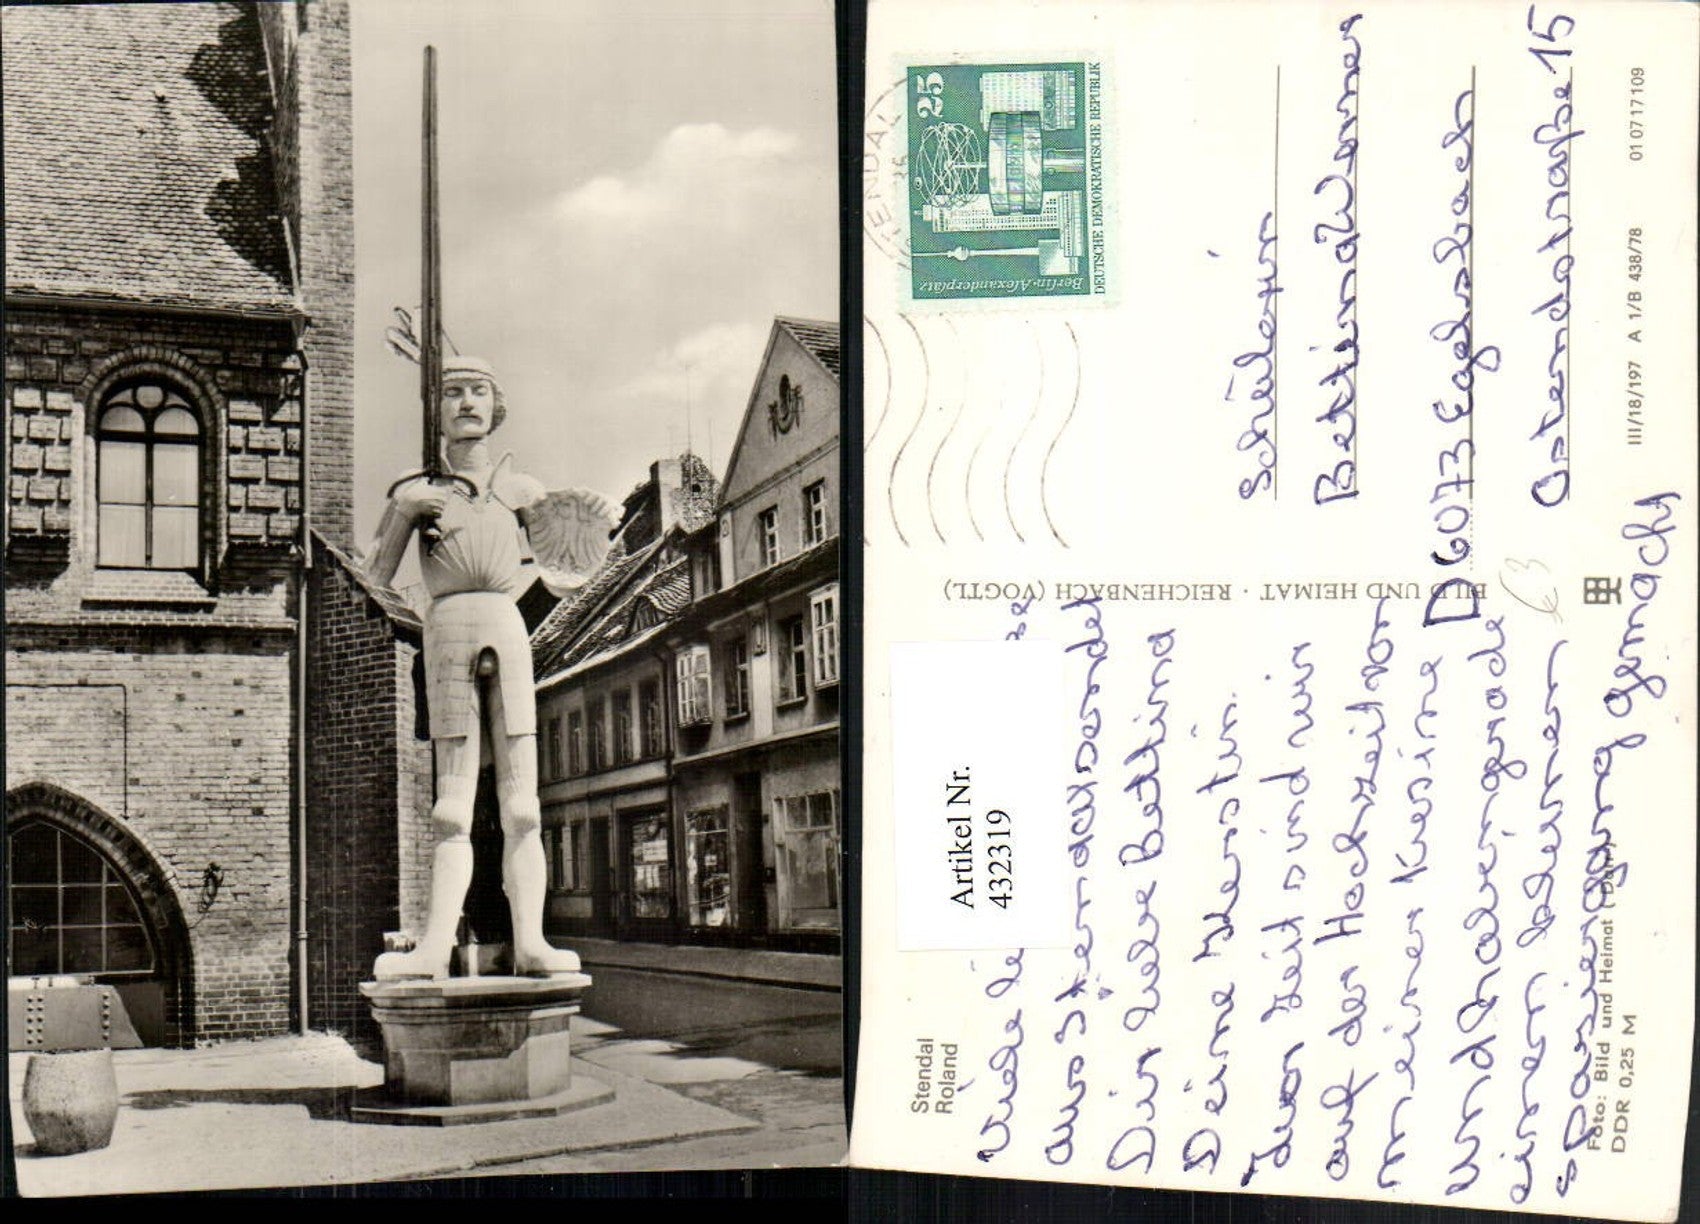 Stendal
Roland
Artikel Nr.
432319
Viele
aus Stendal sendet
Dir liebe Bettina
Deine Kerstin.
Zur Zeit sind wir
auf der Hochzeit von
meiner Kusine
und haben gerade
einen kleinen
spaziergang gemacht
Foto: Bild und Heimat
DDR 0,25 M
BILD UND HEIMAT · REICHENBACH (VOGTL)
STENDAL
25
Berlin-Alexanderplatz
DEUTSCHE DEMOKRATISCHE REPUBLIK
Schülerin
Bettina Werner
D6073 Egelsbach
Ostendstraße 15
€3
III/18/197 A 1/B 438/78 01 07 17 109